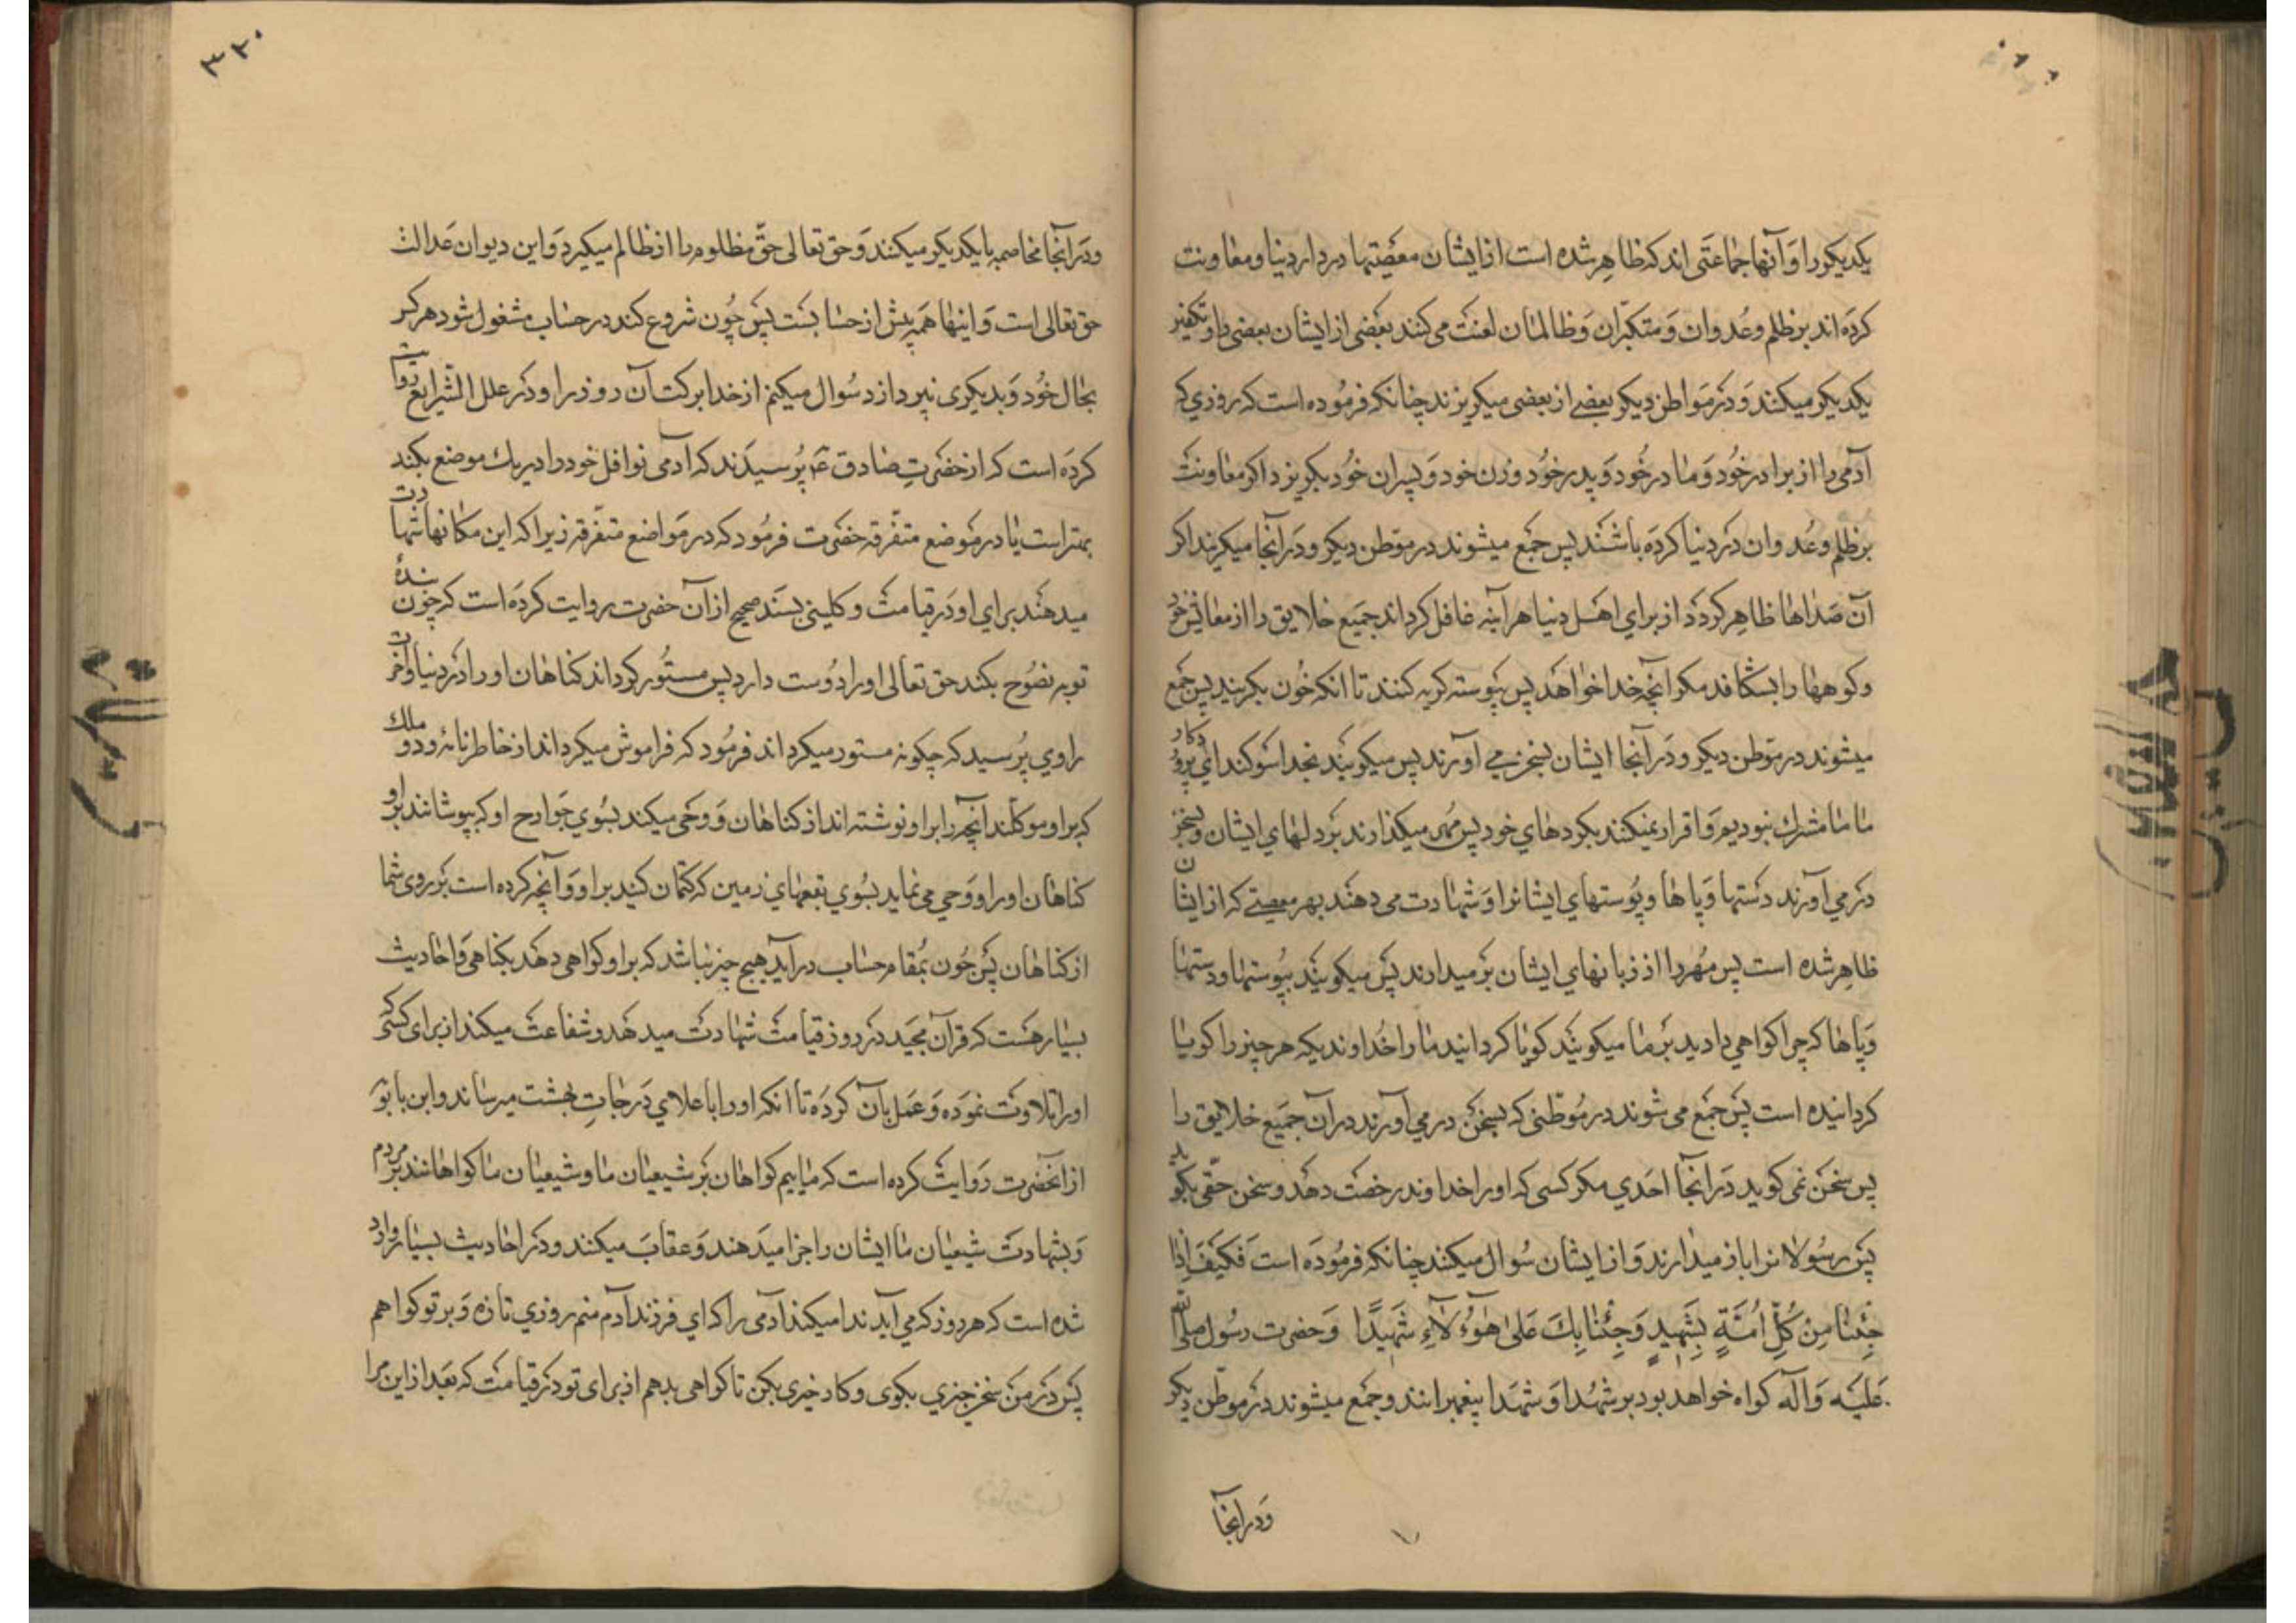 یکدیکر را وَ آنها جماعتی اند که ظاهِر شده است از ایشان معصیتها در دار دنیا و معاونت
کردَه اند بر ظلم و عُدوان وَ متکبّران وَ ظالمان لعنت می کنند بعضی از ایشان بعضی را و تکفیر
یکدیکر میکنند وَ در مَواطن دیکر بعضے از بعضی میکریزند چنانکه فرمُوده است که روزي که
آدمی را از برادر خُود وَ مادر خُود وَ پدر خُود و زن خود وَ پسران خُود بکریزد اکر معاونت
بر ظلم و عُدوان در دنیا کردَه باشند پس جمَع میشوند در موَطن دیکر و دَر آنجا میکریند اکر
آن صَداها ظاهِر کردد از براي اهَل دنیا هر آینه غافل کرداند جمَیع خلایق را از معاش خود
و کوهها را بشکافد مکر آنچه خدا خواهد پس پیوسته کریه کنند تا انکه خُون بکریند پس جمع
میشوند در موَطن دیکر و دَر آنجا ایشان بسخن مي آورند پس میکویند بخدا سَوکند اي پروردکار
ما ما مشرك نبودیم وَ اقرار نمیکنند بکردهاي خود پس مُهر میکذارند بَر دلهاي ایشان و بسخن
در مي آورند دَستها وَ پاها و پُوستهاي ایشانرا وَ شهادت می دهند بهر معصیتے که از ایشان
ظاهِر شده است پس مُهر را از زبانهاي ایشان بَر میدارند پَس میکویند بپُوستها و دستها
وَ پاها که چرا کواهي دادید بَر ما میکویند کویا کردانید ما را خُداوندیکه هر چیز را کویا
کردانیده است پَس جمَع می شوند در مُوطنی که بسخَن در مي آورند در آن جمَیع خلایق را
پس سخَن نمی کوید دَر آنجا احَدي مکر کسی که او را خداوند رخصت دهَد و سخن حقّی بکوید
پَس رسُولانرا باز میدارند وَ از ایشان سُوال میکنند چنانکه فرمُودَه است فَکَیفَ اِذا
جِئنا مِن کُلِّ اُمَّةٍ بِشَهیدٍ وَجِئنا بِكَ عَلیٰ هٰۤؤُلآءِ شَهیدًا وَ حضرت رسُول صلّی الله
عَلیَه وَ آله کواه خواهد بود بر شهُدا وَ شهَدا پیغمبرانند و جمَع میشوند در موَطن دیکر
وَ در آنجا
۳۲۰
و دَر آنجا مخاصمه با یکدیکر میکنند وَ حق تعالی حقّ مظلوم را از ظالم میکیرد وَ این دیوان عَدالت
حق تعالی است وَ اینها همَه پیش از حسابست پَس چُون شروع کند در حساب مشغول شود هر کس
بحال خُود وَ بدیکری نپردازد سُوال میکنم از خدا برکت آن روز را و در علل الشّرایع روایت
کردَه است که از حضَرتِ صادق ع پُرسیدَند که آدمی نوافل خود را در یك موضع بکند
بهتر است یا در مَوضع متفّرقه حضَرت فرمُود که در مَواضع متفّرقه زیرا که این مکانها شهادت
میدهند براي او دَر قیامت و کلینی بسَند صحیح از آن حضرت روایت کردَه است که چون بندهٔ
توبه نصُوح بکند حق تعالی او را دُوست دارد پس مستُور کرداند کناهان او را در دنیا و آخرت
راوي پُرسید که چکونه مستور میکرداند فرمُود که فراموش میکرداند از خاطر نانهٔ و دو ملك
که بر او موکلند آنچه را بر او نوشته اند از کناهان وَ وَحی میکند بسُوي جَوارح او که بپوشانند بر او
کناهان او را و وَحي می نماید بسُوي بقعهاي زمین که کتمان کنید بر او وَ آنچه کرده است بَر روی شما
از کناهان پَس چُون بمُقام حساب در آید هیچ چیز نباشد که بر او کواهی دهَد بکناهی وَ احادیث
بسیار هسَت که قرآن مجَید در روز قیامت شهادت میدهَد و شفاعت میکند از برای کسَی که
او را تلاوت نموَده وَ عمَل بآن کردَه تا انکه او را باعلاي دَرجاتِ بهشت میرساند و ابن بابوَیه
از انحضَرت رَوایت کرده است که ماییم کواهان بَر شیعیان ما و شیعیان ما کواهانند بر مردم
وَ بشهادت شیعیان ما ایشان را جزا میدَهند وَ عقابَ میکنند و در احادیث بسیار وارد
شده است که هر روز که مي آید ندا میکند آدمی را که اي فرزند آدم منم روزي تازه وَ بر تو کواهم
پَس در من سخَن خیري بکوی و کار خیری بکن تا کواهی بدهم از برای تو در قیامت که بَعد از این مرا